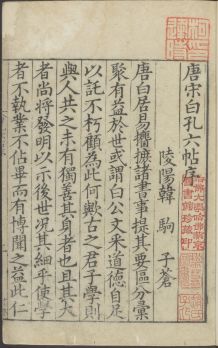 唐宋白孔六帖序
陵陽韓 駒 子蒼
唐白居易攟摭諸書事提其要區分彙
聚有益於世或謂白公文米道德自足
以託不朽顧為此何歟古之君子學則
與人共之未有獨善其身者也且其大
者尚將發明以示後世况其細乎使學
者不執業不佔畢而有博聞之益此仁